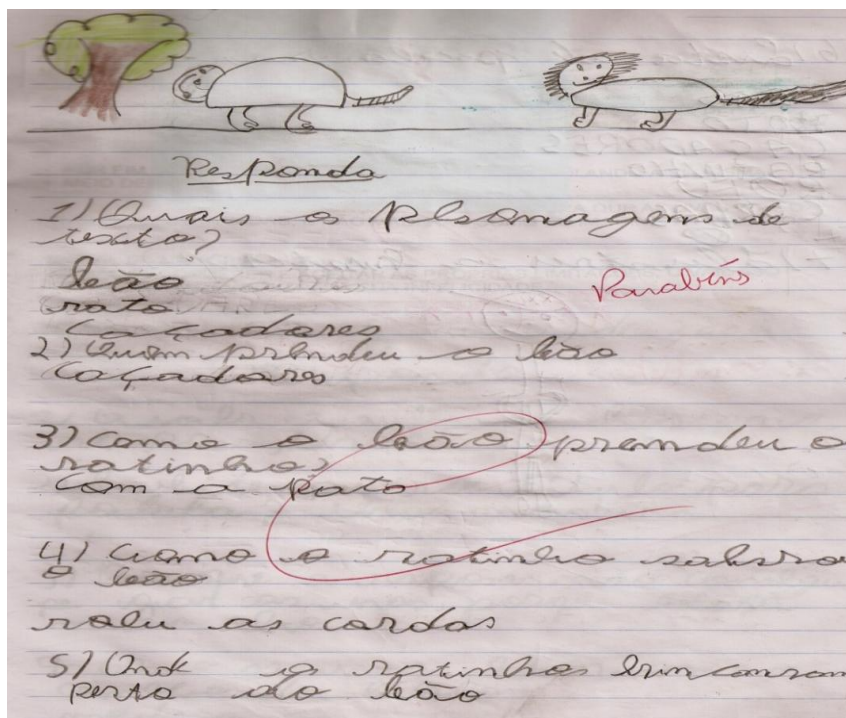 Responda
1) Quais os plsonagens de
texto?
leão
rato
caçadores
Parabéns
2) Quem prendeu o leão
caçadores
3) Como o leão prendeu o
ratinho?
Com a pata
4) Como o ratinho salvro
o leão
roeu as cordas
5) Onde o ratinho brincavam
perto do leão